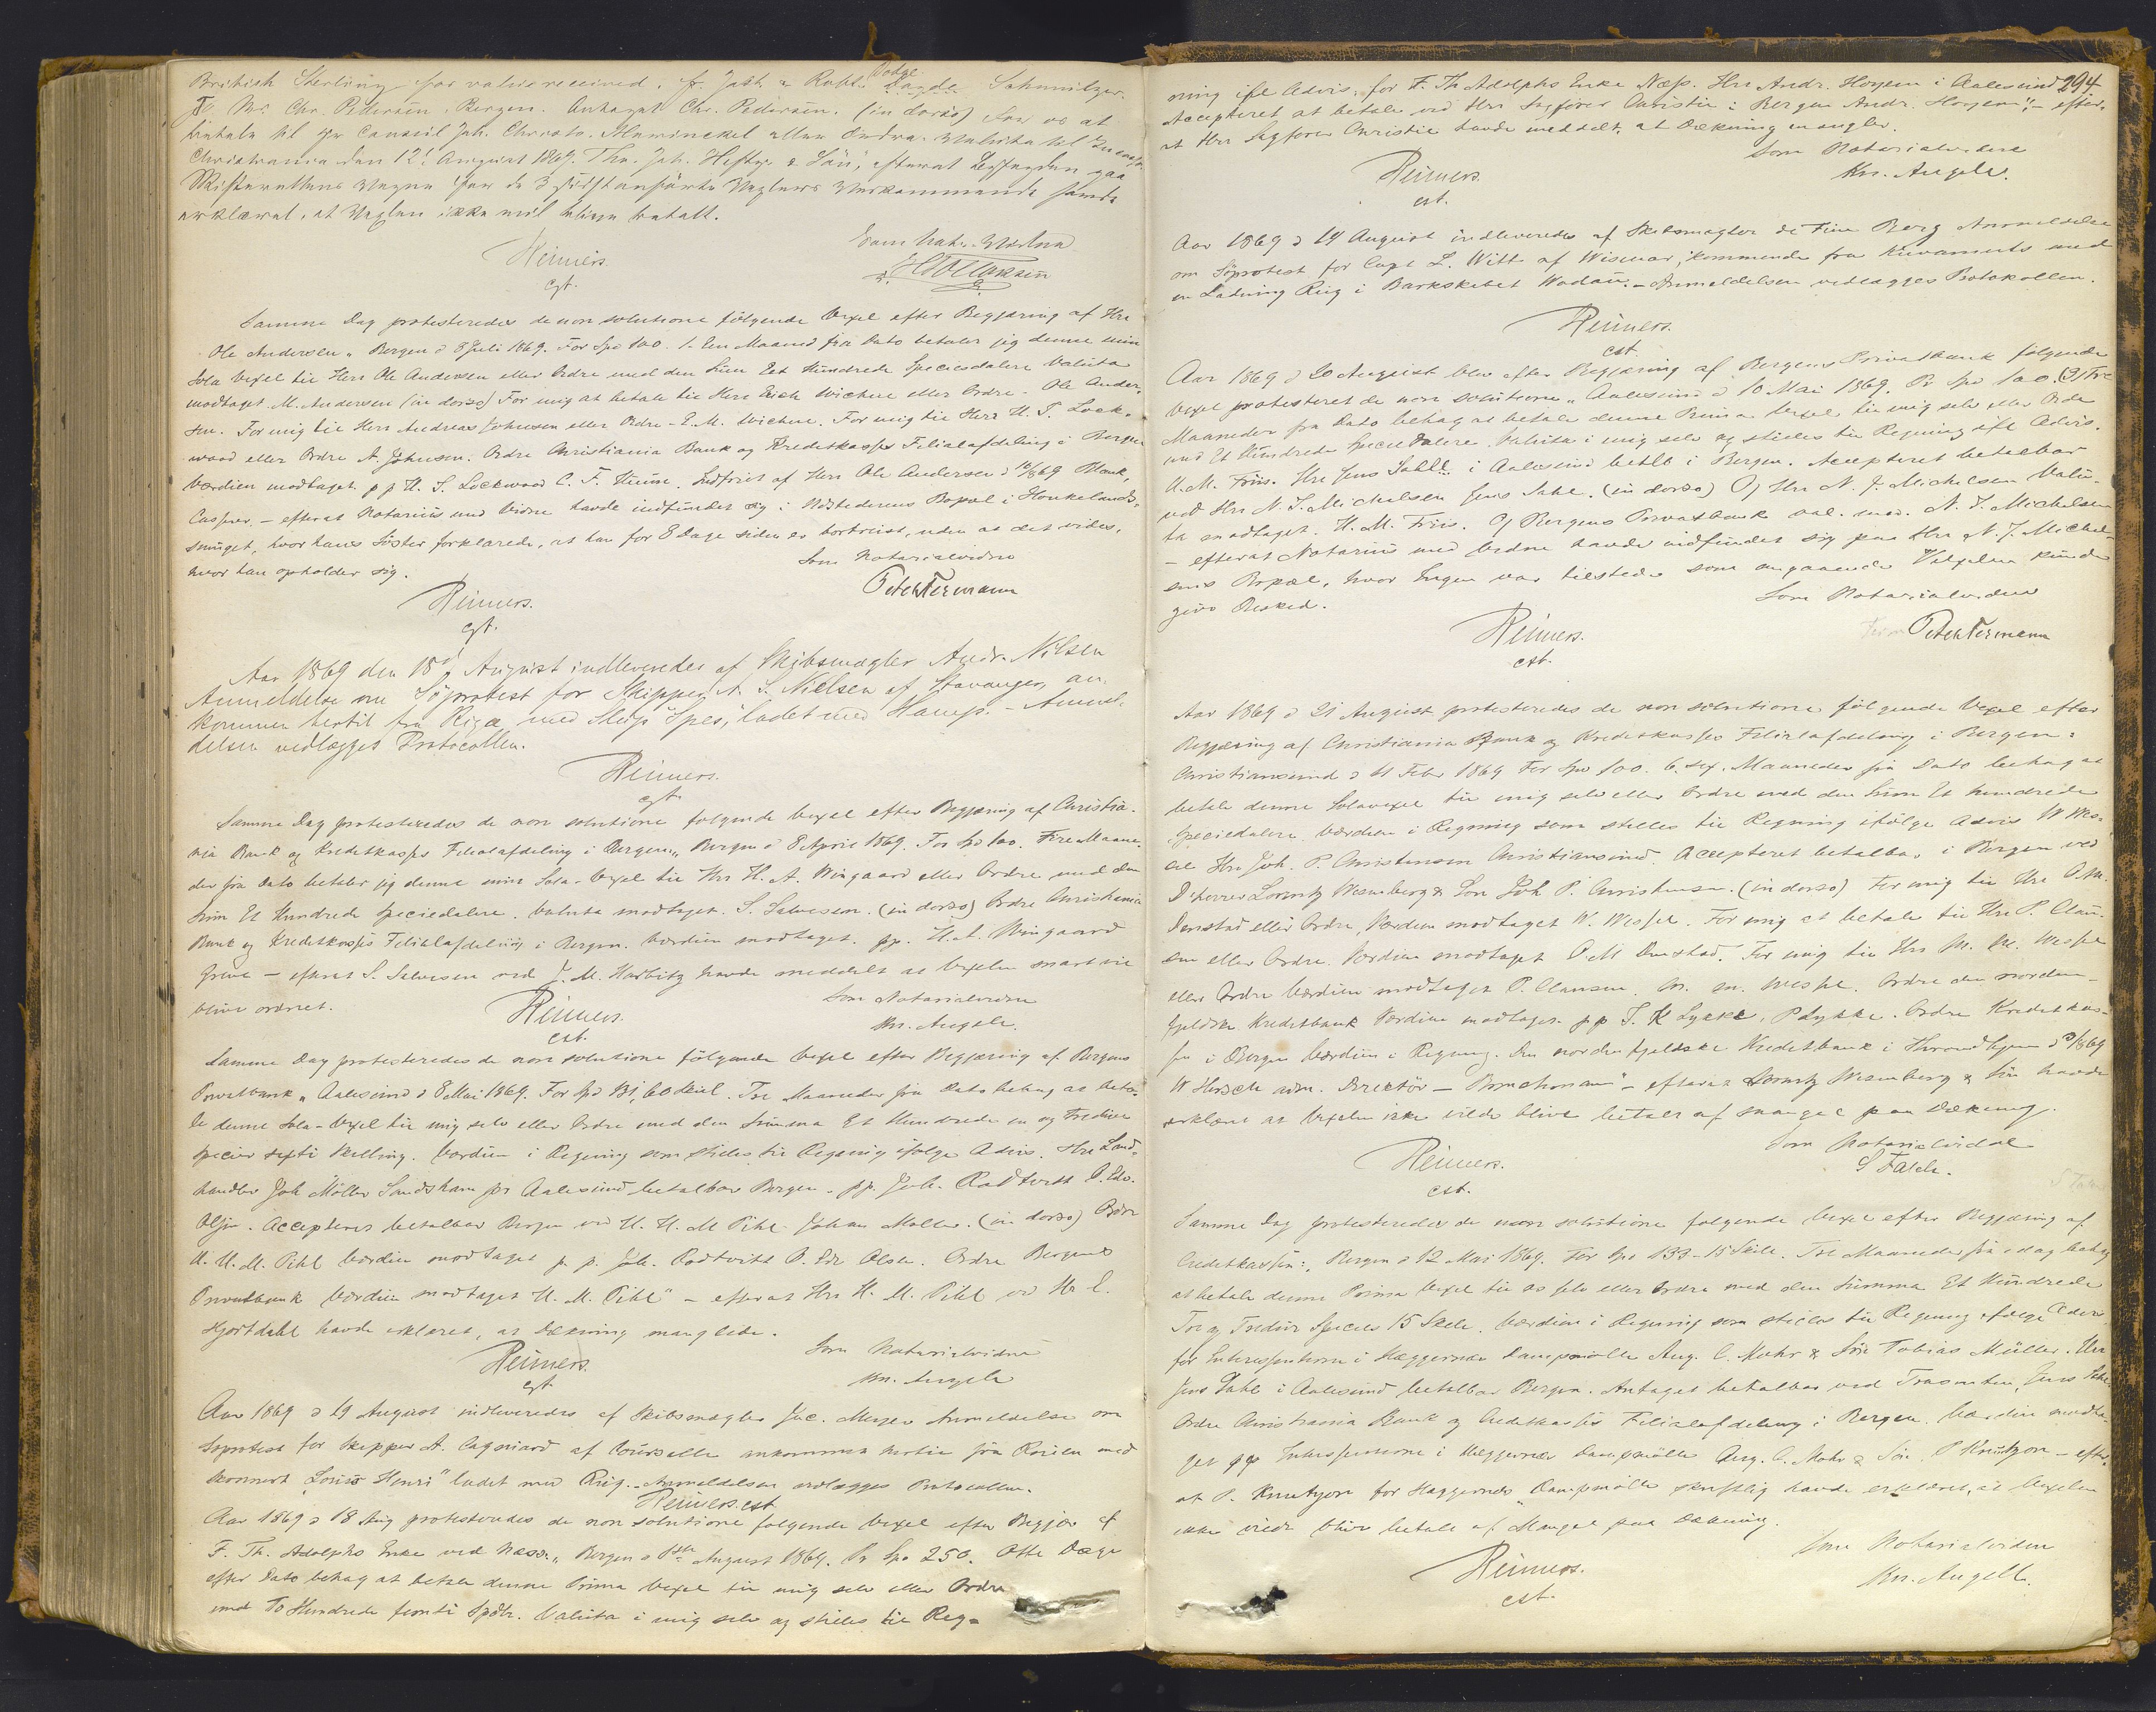 British Sterling for value received. f. Joth & Robt. Dodge Sahmilzer.
To Mr. Chr. Pedersen, Bergen. Antaget Chr. Pedersen. (in dorso) for os at
betale til Hr Consul Joh. Christo. Mowinckel eller Ordre. Valuta til Incasso.
Christiania den 12t August 1869. Ths. Joh. Heftye & Sön", efterat
Skifterettens Vegne for de 3 sidstanførte Vexlers Vedkommende havde
erklæret, at Vexlen ikke vil blive betalt.
Reimers.
cst.
Som Not. Vidne
Samme Dag protesteredes de non solutione følgende Vexel efter Begjæring af Hrr
Ole Andersen "Bergen d 8 Juli 1869. For Spd 100. 1. Een Maaned fra Dato betaler jeg denne min
Sola Vexel til Herr Ole Andersen eller Ordre med den Sum Eet Hundrede Speciesdalere Valuta
modtaget. M. Andersen (in dorso) For mig at betale til Herr Erich Wichne eller Ordre. Ole Ander-
sen. For mig til Herr Andreas Johnsen eller Ordre E. M. Wichne. For mig til Herr H. S. Lock-
wood eller Ordre A. Johnsen. Ordre Christiania Bank og Kreditkasses Filialafdeling i Bergen
Værdien modtaget. pp H. S. Lockwood C. F. Heume. Indfriet af Herr Ole Andersen d 12/8 69 Blank,
Casper. – efterat Notarius med Vidne havde indfundet sig i Udstederens Bopæl i Haukelands-
smuget, hvor hans Søster forklarede, at han for 8 Dage siden er bortreist, uden at det vides,
hvor han opholder sig.
Som Notarialvidne
Reimers.
cst.
Peter Termann
Aar 1869 den 18de August indleveredes af Skibsmægler Andr. Nilsen
Anmeldelse om Søprotest for Skipper N. S. Nielsen af Stavanger, an-
kommen hertil fra Riga med Slup "Spes", ladet med Hamp. – Anmel-
delsen vedlægges Protocollen.
Reimers.
cst.
Samme Dag protesteredes de non solutione følgende Vexel efter Begjæring af Christia-
nia Bank og Kreditkasses Filialafdeling i Bergen: "Bergen d 8 April 1869. For Spd 100. Fire Maane-
der fra Dato betaler jeg denne min Sola-Vexel til Hrr H. A. Wingaard eller Ordre med den
Sum Et Hundrede Speciedalere. Valuta modtaget. S. Salvesen. (in dorso) Ordre Christiania
Bank og Kreditkasses Filialafdeling i Bergen. Værdien modtaget. pp. H. A. Wingaard
Greve – efterat S. Salvesen ved J. M. Harbitz havde meddelt at Vexelen snart vil
blive ordnet.
Reimers.
cst.
Som Notarialvidne
Kn. Angell.
Samme Dag protesteredes de non solutione følgende Vexel efter Begjæring af Bergens
Privatbank "Aalesund d 8 Mai 1869. For Spd 131, 60 Skil. Tre Maaneder fra Dato behag at beta-
le denne Sola-Vexel til mig selv eller Ordre med den Summa Et Hundrede en og Tredive
Specier sexti Skilling. Værdien i Regning som stilles til Regning ifølge Advis. Hrr Land-
handler Joh Møller Sandshavn pr Aalesund betalbar Bergen. pp. Joh. Rødtvitt O. Edv.
Olsen. Accepteret betalbar Bergen ved H. H. M Pihl Johan Møller. (in dorso) Ordre
H. H. M. Pihl Værdien modtaget p. p. Joh. Rødtvitt O. Edv Olsen. Ordre Bergens
Privatbank Værdien modtaget H. M. Pihl" – efterat Hrr H. M. Pihl ved Hr C.
Hjortdahl havde erklæret, at Dækning manglede.
Reimers.
cst.
Som Notarialvidne
Kn. Angell
Aar 1869 d 19 August indleveredes af Skibsmægler Jac. Meyer Anmeldelse om
Søprotest for Skipper A. Cagniard af Courselle ankommen hertil fra Rouen med
Skonnert "Louis Henri" ladet med Rug. – Anmeldelsen vedlægges Protocollen.
Reimers. cst.
Aar 1869 d 18 Aug protesteredes de non solutione følgende Vexel efter Begjær af
F. Th. Adolphs Enke ved Næss. "Bergen d August 1869. Pr Spd 250. Otte Dage
efter Dato behag at betale denne Prima Vexel til mig selv eller Ordre
med To Hundrede femti Spdlr. Valuta i mig selv og stilles til Reg-
294
ning ifl Advis, for F. Th Adolphs Enke Næss. Hrr Andr. Horgen i Aalesund
Accepteret at betale ved Hrr Sagfører Christie i Bergen Andr. Horgen" – efter-
at Hrr Sagfører Christie havde meddelt, at Dækning mangler.
Reimers.
cst.
Som Notarialvidne
Kn. Angell.
Aar 1869 d 19 August indleveredes af Skibsmægler de Fine Berg Anmeldelse
om Søprotest for Capt L. Witt af Wismar, kommende fra med
en Ladning Rug i Barkskibet Wodan. – Anmeldelsen vedlægges Protokollen.
Reimers.
cst.
Aar 1869 d 20 August blev efter Begjæring af Bergens Privatbank følgende
Vexel protesteret de non solutione "Aalesund d 10 Mai 1869. Pr Spd 100. (3) Tre
Maaneder fra Dato behag at betale denne Prima Vexel til mig selv eller Ordre
med Et Hundrede Speciedalere. Valuta i mig selv og stilles til Regning ifl Advis.
H. M. Friis. Hrr Jens Sahl i Aalesund betlb i Bergen. Accepteret betalbar
ved Hrr N. J. Michelsen Jens Sahl. (in dorso) Og Hrr N. J. Michelsen Valu-
ta modtaget. H. M. Friis. Og Bergens Privatbank val. mod. N. J. Michelsen
– efterat Notarius med Vidne havde indfundet sig paa Hrr N. J. Michel-
sens Bopæl, hvor Ingen var tilstede som angaaende Vexelen kunde
give Besked.
Reimers.
cst.
Som Notarialvidne
Peter Termann
Aar 1869 d 21 August protesteredes de non solutione følgende Vexel efter
Begjæring af Christiania Bank og Kreditkasses Filialafdeling i Bergen:
Christiansund d 11 Febr 1869 For Spd 100. 6. sex. Maaneder fra Dato behag at
betale denne Solavexel til mig selv eller Ordre med den Sum Et hundrede
Speciedalere Værdien i Regning som stilles til Regning ifølge Advis W Wes-
sel Hrr Joh. P. Christensen Christiansund. Accepteret betalbar i Bergen ved
D'herrer Lorentz Wesenberg & Søn Joh P. Christensen. (in dorso) For mig til Hrr O. M.
Denstad eller Ordre, Værdien modtaget W. Wessel. For mig at betale til Hrr P. Clau-
sen eller Ordre. Værdien modtaget O. M Denstad. For mig til Hrr M. M. Wessel
eller Ordre Værdien modtaget P. Clausen. M. M. Wessel. Ordre den norden-
fjeldske Kreditbank Værdien modtaget. pp J. K Lykke, P Lykke. Ordre Kreditkas-
sen i Bergen Værdien i Regning. Den nordenfjeldske Kreditbank i Throndhjem d 3/8 69
W Hersch adm. Directør – " – efterat Lorentz Wesenberg & Søn havde
erklæret at Vexelen ikke vilde blive betalt af Mangel paa Dækning.
Reimers.
cst.
Som Notarialvidne
S Falch.
Samme Dag protesteredes de non solutione følgende Vexel efter Begjæring af
Creditkassen: "Bergen d 12 Mai 1869. For Spd 133 – 15 Skill. Tre Maaneder fra idag behag
at betale denne Prima Vexel til os selv eller Ordre med den Summa Et Hundrede
Tre og Tredive Species 15 Skill. Værdien i Regning som stilles til Regning ifølge Advis
for Interessenterne i Hæggernæs Dampmølle Aug. C. Mohr & Søn Tobias Müller. Herr
Jens Sahl i Aalesund betalbar Bergen. Antaget betalbar ved Trasenten, Jens Sahl
Ordre Christiania Bank og Creditkasses Filialafdeling i Bergen. Værdien modta-
get pp Interessenterne i Hæggernæs Dampmølle Aug. C. Mohr & Søn. P Knutzon – efter-
at P. Knutzon for Hæggernæs Dampmølle skriftlig havde erklæret, at Vexelen
ikke vilde blive betalt af Mangel paa Dækning.
Reimers.
cst.
Som Notarialvidne
Kn. Angell.